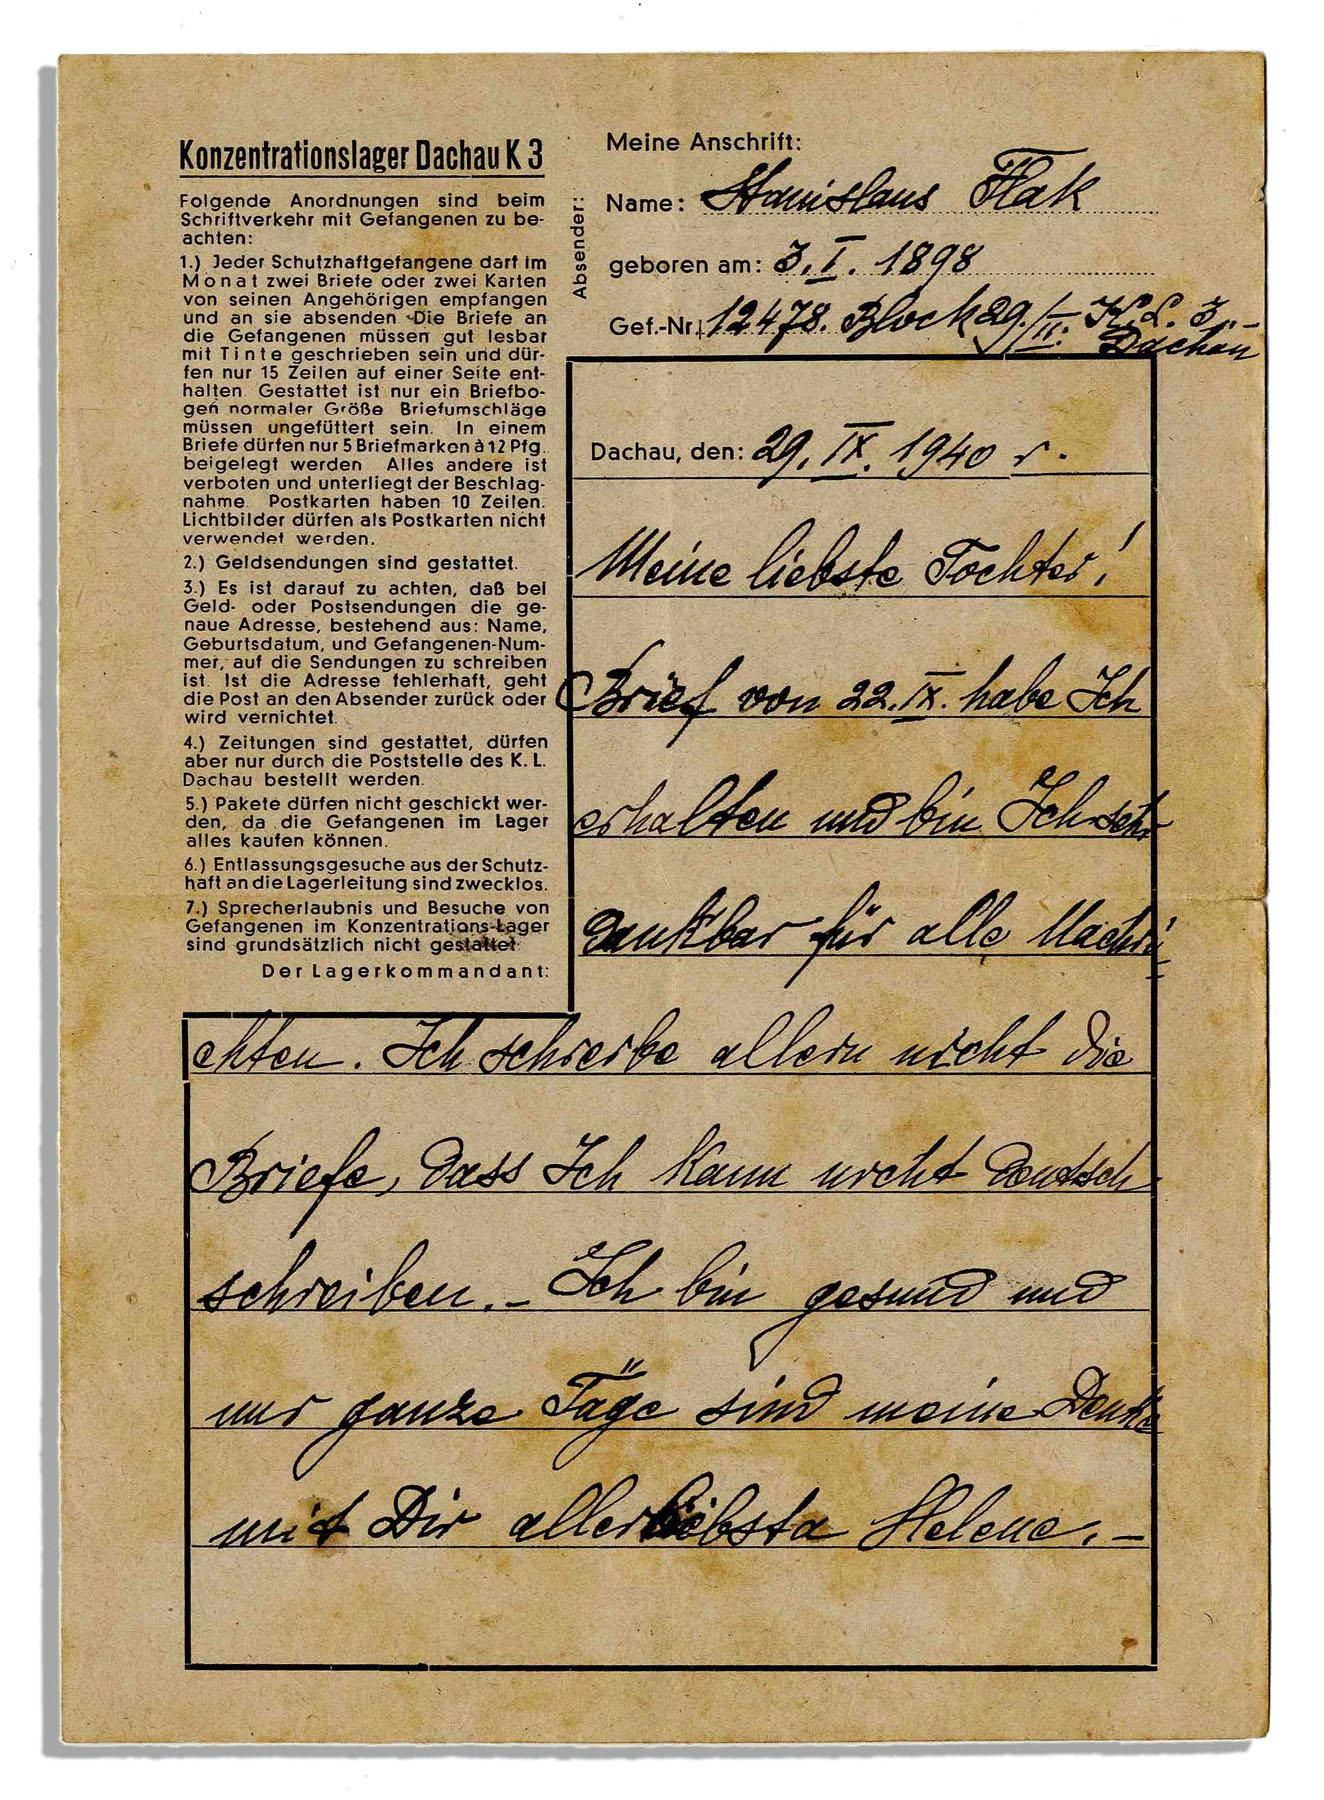 Konzentrationslager Dachau K 3
Folgende Anordnungen sind beim
Schriftverkehr mit Gefangenen zu be-
achten:
1.) Jeder Schutzhaftgefangene darf im
Monat zwei Briefe oder zwei Karten
von seinen Angehörigen empfangen
und an sie absenden Die Briefe an
die Gefangenen müssen gut lesbar
mit Tinte geschrieben sein und dür-
fen nur 15 Zeilen auf einer Seite ent-
halten. Gestattet ist nur ein Briefbo-
gen normaler Größe Briefumschläge
müssen ungefüttert sein. In einem
Briefe dürfen nur 5 Briefmarken à 12 Pfg.
beigelegt werden Alles andere ist
verboten und unterliegt der Beschlag-
nahme. Postkarten haben 10 Zeilen.
Lichtbilder dürfen als Postkarten nicht
verwendet werden.
2.) Geldsendungen sind gestattet.
3.) Es ist darauf zu achten, daß bei
Geld- oder Postsendungen die ge-
naue Adresse, bestehend aus: Name,
Geburtsdatum, und Gefangenen-Num-
mer, auf die Sendungen zu schreiben
ist. Ist die Adresse fehlerhaft, geht
die Post an den Absender zurück oder
wird vernichtet.
4.) Zeitungen sind gestattet, dürfen
aber nur durch die Poststelle des K. L.
Dachau bestellt werden.
5.) Pakete dürfen nicht geschickt wer-
den, da die Gefangenen im Lager
alles kaufen können.
6.) Entlassungsgesuche aus der Schutz-
haft an die Lagerleitung sind zwecklos.
7.) Sprecherlaubnis und Besuche von
Gefangenen im Konzentrations-Lager
sind grundsätzlich nicht gestattet
Der Lagerkommandant:
Absender:
Meine Anschrift:
Name: Stanislaus Flak
geboren am: 3. I. 1898
Gef.-Nr. 12478. Block 29/II. K. L. 3 -
Dachau
Dachau, den: 29. IX. 1940 r.
Meine liebste Tochter!
Brief von 22. IX. habe Ich
erhalten und bin Ich sehr
dankbar für alle Nachri=
chten. Ich schreibe allein nicht die
Briefe, dass Ich kann nicht deutsch
schreiben. - Ich bin gesund und
nur ganze Täge sind meine Denke
mit Dir allerliebsta Helene. -